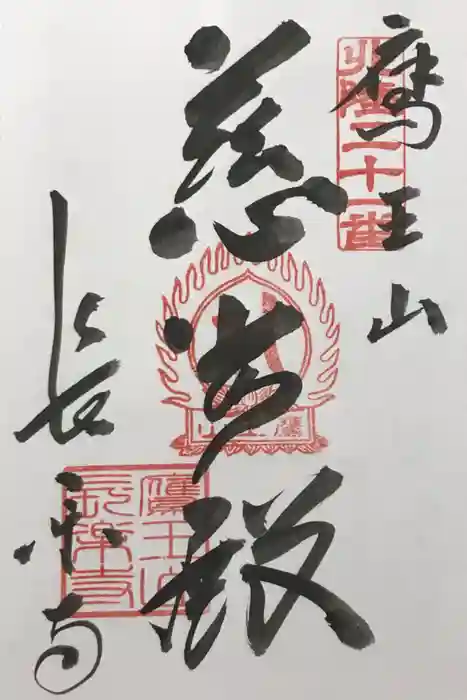 北陸二十一番
鷹王山
慈光殿
長楽寺
鷹王山
長楽寺